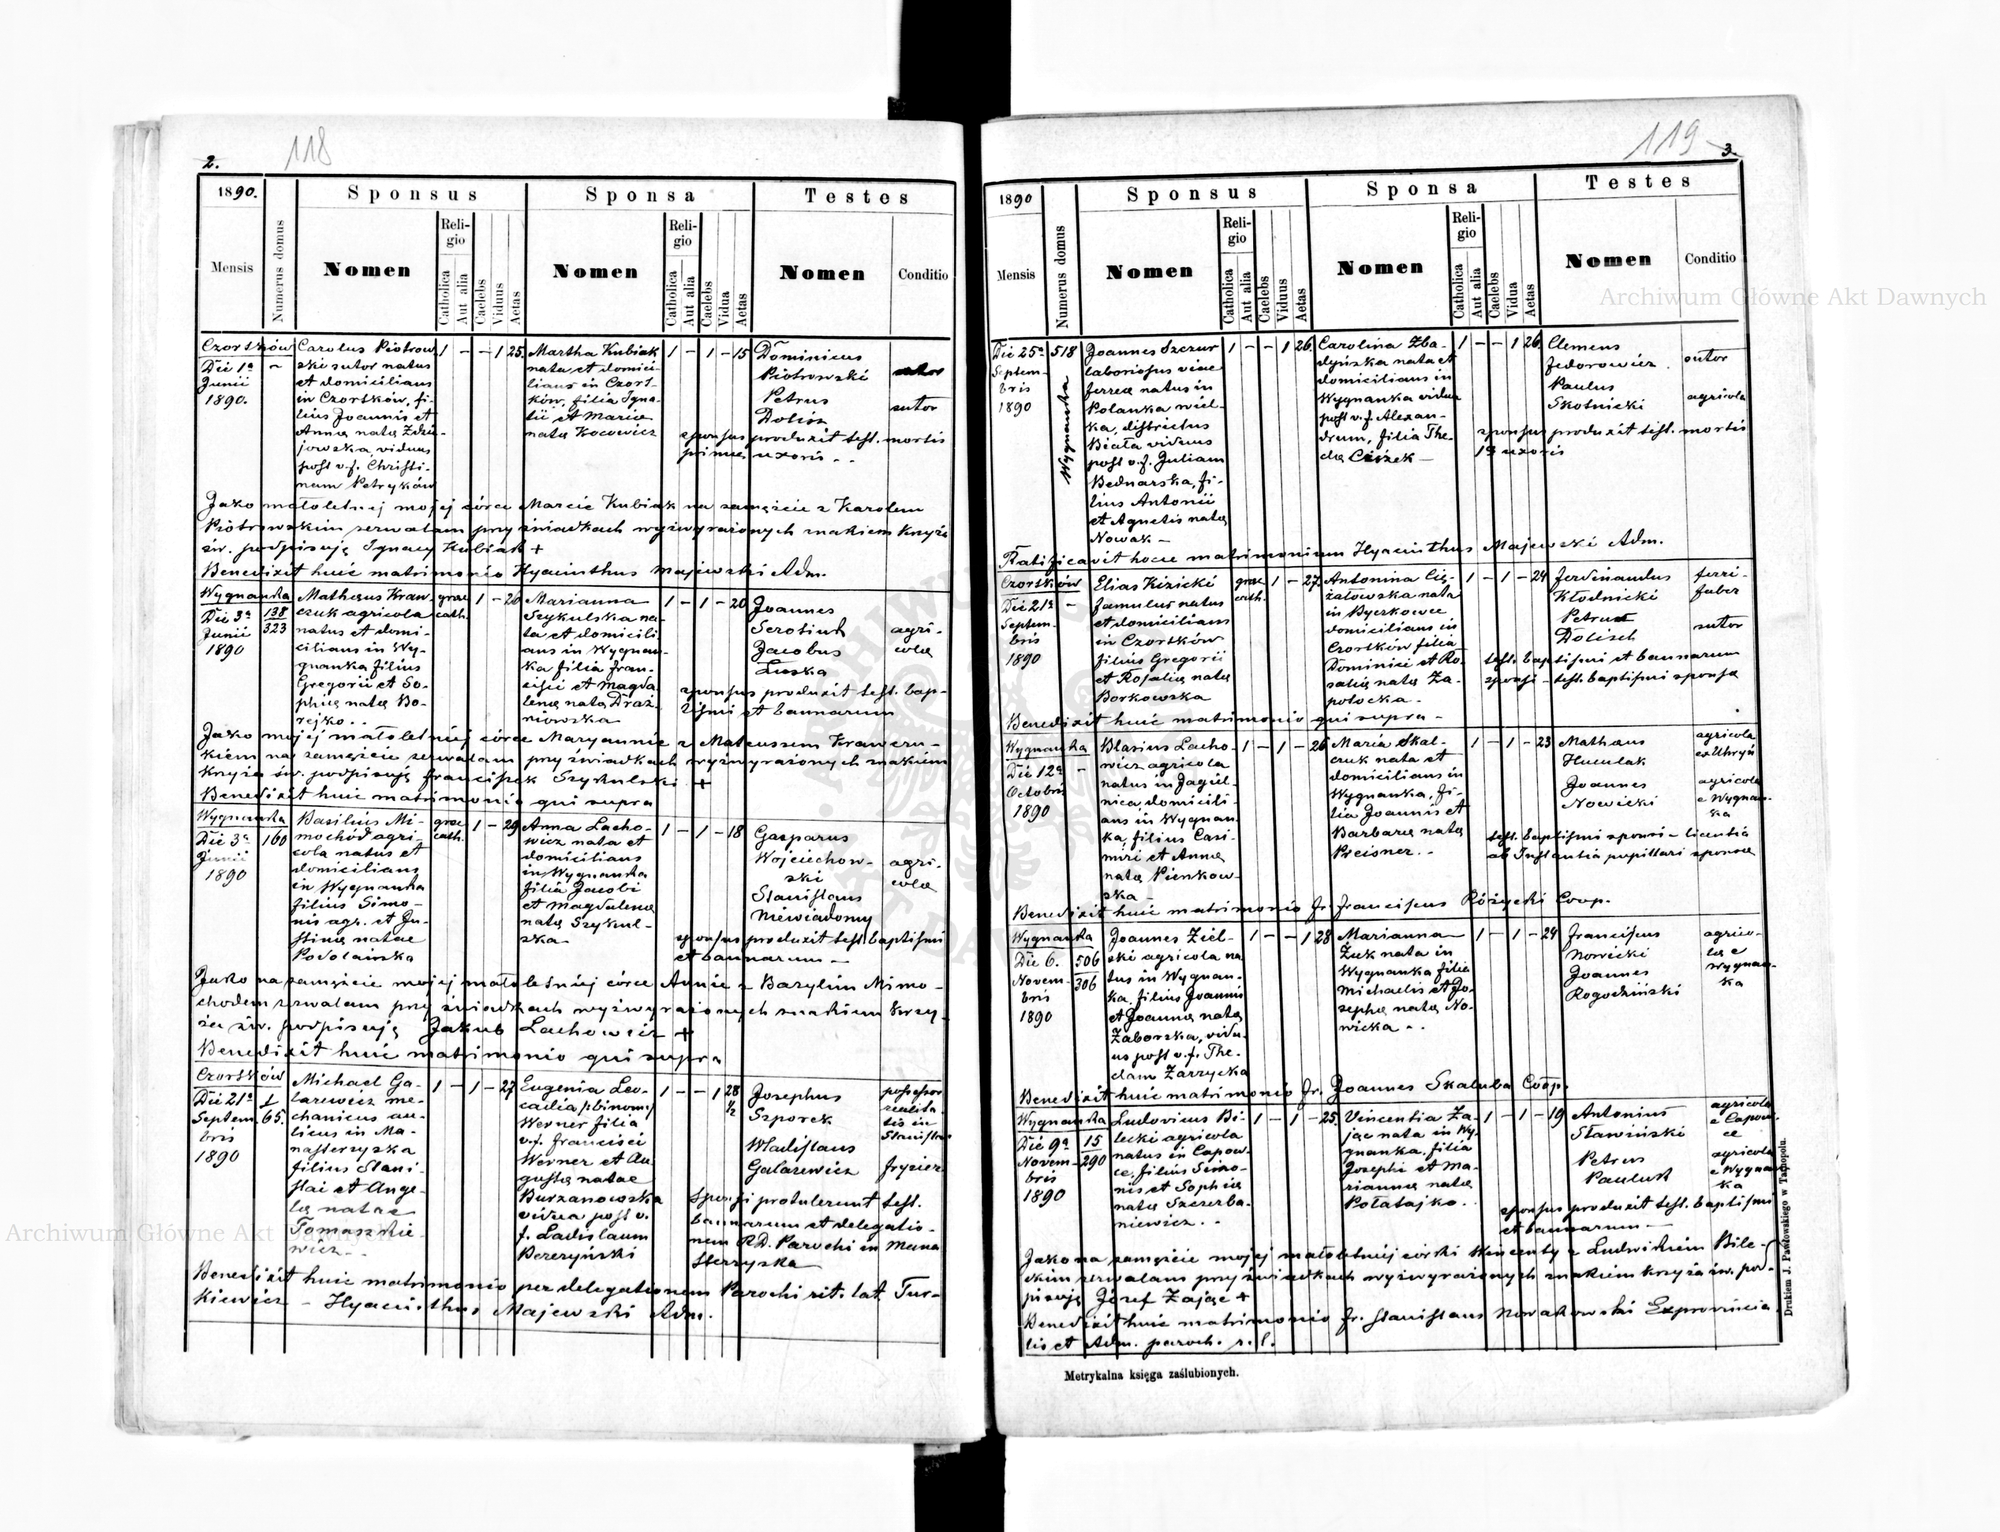 118
2.
1890.
Sponsus
Sponsa
Testes
Mensis
Numerus domus
Nomen
Religio
Catholica
Aut alia
Caelebs
Viduus
Aetas
Nomen
Religio
Catholica
Aut alia
Caelebs
Vidua
Aetas
Nomen
Conditio
Czortków
Die 1a
Junii
1890.
Carolus Piotrow
ski sutor natus
et domicilians
in Czortków, fi-
lius Joannis et
Anna nata
jowska, viduus
post v. f. Christi-
nam Petryków
1 - - 1 25.
Martha Kubiak
nata et domici-
lians in Czort-
ków, filia Igna-
tii et Maria
nata Kocowicz
1 - 1 - 15
Dominicus
Piotrowski
Petrus
Dolisz
sutor
sutor
sponsus produxit test. mortis
primae uxoris . .
Jako małoletniej mojej córce Marcie Kubiak na zamęście z Karolem
Piotrowskim zezwalam przy świadkach wyżwyrażonych znakiem krzyża
św. podpisują Ignacy Kubiak +
Benedixit huic matrimonio Hyacinthus Majewski Adm.
Wygnanka
Die 3a
Junii
1890
138
323
Matheus Kraw
czuk agricola
natus et domi-
cilians in Wy-
gnanka filius
Gregorii et So-
phia nata Bo-
rejko . .
graec
cath.
1 - 26
Marianna
Szykulska na-
ta et domicili
ans in Wygnan-
ka filia Fran-
cisci et Magda
lena nata Draz-
niowska
1 - 1 - 20
Joannes
Serotiuk
Jacobus
Luska
agri-
cola
sponsus produxit test. bap-
tismi et bannorum
Jako mojej małoletniej córce Maryannie z Mateuszem Krawczu-
kiem na zamęście zezwalam przy świadkach wyżwyrażonych znakiem
krzyża św. podpisują Franciszek Szykulski +
Benedixit huic matrimonio qui supra
Wygnanka
Die 3a
Junii
1890
160
Basilius Mi-
mochód agri-
cola natus et
domicilians
in Wygnanka
filius Simo-
nis agr. et Ju-
stina natae
Podolanska
graec
cath.
1 - 29
Anna Lacho-
wicz nata et
domicilians
in Wygnanka
filia Jacobi
et Magdalena
nata Szykul-
ska
1 - 1 - 18
Gasparus
Wojciechow-
ski
Stanislaus
Niewiadomy
agri-
cola
sponsus produxit test. baptismi
et bannorum -
Jako na zamęście mojej małoletniej córce Annie z Bazylim Mimo-
chodem zezwalam przy świadkach wyżwyrażonych znakiem krzy-
ża św. podpisują Jakub Lachowicz +
Benedixit huic matrimonio qui supra
Czortków
Die 21a
Septem-
bris
1890
1
65.
Michael Ga-
larewicz me-
chanicus au-
licus in Ma-
nasterzyska
filius Stani-
slai et Ange-
la natae
Tomaszkie-
wicz - .
1 - 1 - 27
Eugenia Leo-
cadia /:binom:/
Werner filia
v. f. Francisci
Werner et Au-
gusta natae
Burzanowska
vidua post v.
f. Ladislaum
Berezyński
1 - - 1 28
1/2
Josephus
Szporek
Wladislaus
Galarewicz
possessor
realita-
tis in
Stanislau
fryzier
Sponsi protulerunt test.
bannorum et delegatio-
nem RD. Parochi in Mana
sterzyska
Benedixit huic matrimonio per delegationem Parochi rit. lat. Tur-
kiewicz - Hyacinthus Majewski Adm.
119
3.
1890
Sponsus
Sponsa
Testes
Mensis
Numerus domus
Nomen
Religio
Catholica
Aut alia
Caelebs
Viduus
Aetas
Nomen
Religio
Catholica
Aut alia
Caelebs
Vidua
Aetas
Nomen
Conditio
Die 25a
Septem-
bris
1890
518
Wygnanka
Joannes Szczur
laboriosus viae
ferrea natus in
Polanka wiel-
ka, districtus
Biała, viduus
post v. f. Juliam
Bednarska, fi-
lius Antonii
et Agnetis nata
Nowak -
1 - - 1 26.
Carolina Zba-
dyńska nata et
domicilians in
Wygnanka vidua
post v. f. Alexan-
drum, filia The-
dea Ciszek -
1 - - 1 26.
Clemens
Fedorowicz .
Paulus
Skotnicki
sutor
agricola
sponsus produxit test. mortis
1a uxoris
Ratificavit hocce matrimonium Hyacinthus Majewski Adm.
Czortków
Die 21a
Septem-
bris
1890
-
Elias Kizicki
famulus natus
et domicilians
in Czortków
filius Gregorii
et Rosalia nata
Borkowska
graec
cath.
1 - 27
Antonina
nata
in Byczkowce
domicilians in
Czortków filia
Dominici et Ro-
salia nata Za-
potocka .
1 - 1 - 24
Ferdinandus
Kłodnicki
Petrus
Dolisch
ferri-
faber
sutor
test. baptismi et bannorum
sponsi - test. baptismi sponsa
Benedixit huic matrimonio qui supra -
Wygnanka
Die 12a
Octobris
1890
-
Blasius Lacho-
wicz agricola
natus in Jagiel-
nica, domicili-
ans in Wygnan-
ka, filius Casi-
miri et Anna
nata Pienkow-
ska -
1 - 1 - 26
Maria Skal-
czuk nata et
domicilians in
Wygnanka, fi-
lia Joannis et
Barbara nata
Preisner . .
1 - 1 - 23
Matheus
Huculak
Joannes
Nowicki
agricola
ex Uhryń
agricola
e Wygnan-
ka
test. baptismi sponsi - licentia
ab Instantia pupillari sponsa
Benedixit huic matrimonio fr. Franciscus Różycki Coop.
Wygnanka
Die 6.
Novem-
bris
1890
506
306
Joannes Ziel-
ski agricola na
tus in Wygnan-
ka, filius Joannis
et Joanna nata
Zaborska, vidu-
us post v. f. The-
clam Zarzycka
1 - - 1 28
Marianna
Żuk nata in
Wygnanka filia
Michaelis et Jo-
sepha nata No-
wicka - .
1 - 1 - 24
Franciscus
Nowicki
Joannes
Rogodziński
agrico-
la e
Wygnan-
ka
Benedixit huic matrimonio fr. Joannes Skałuba Coop.
Wygnanka
Die 9a
Novem-
bris
1890
15
290
Ludovicus Bi-
lecki agricola
natus in Capow-
ce, filius Simo-
nis et Sophia
nata Szczerba-
niewicz . .
1 - 1 - 25.
Vincentia Za-
jąc nata in Wy-
gnanka, filia
Josephi et Ma-
rianna nata
Połatajko . .
1 - 1 - 19
Antonius
Sławiński
Petrus
Pauluk
agricola
e Capow-
ce
agricola
e Wygnan
ka
sponsus produxit test. baptismi
et bannorum -
Jako na zamęście mojej małoletniej córki Wincenty z Ludwikiem Bile-
ckim zezwalam przy świadkach wyżwyrażonych znakiem krzyża św. pod-
pisują Józef Zając +
Benedixit huic matrimonio fr. Stanislaus Nowakowski Exprovincia
lis et Adm. paroch. r. l.
Metrykalna księga zaślubionych.
Drukiem J. Pawłowskiego w Tarnopolu.
Archiwum Główne Akt Dawnych
Archiwum Główne Akt Dawnych